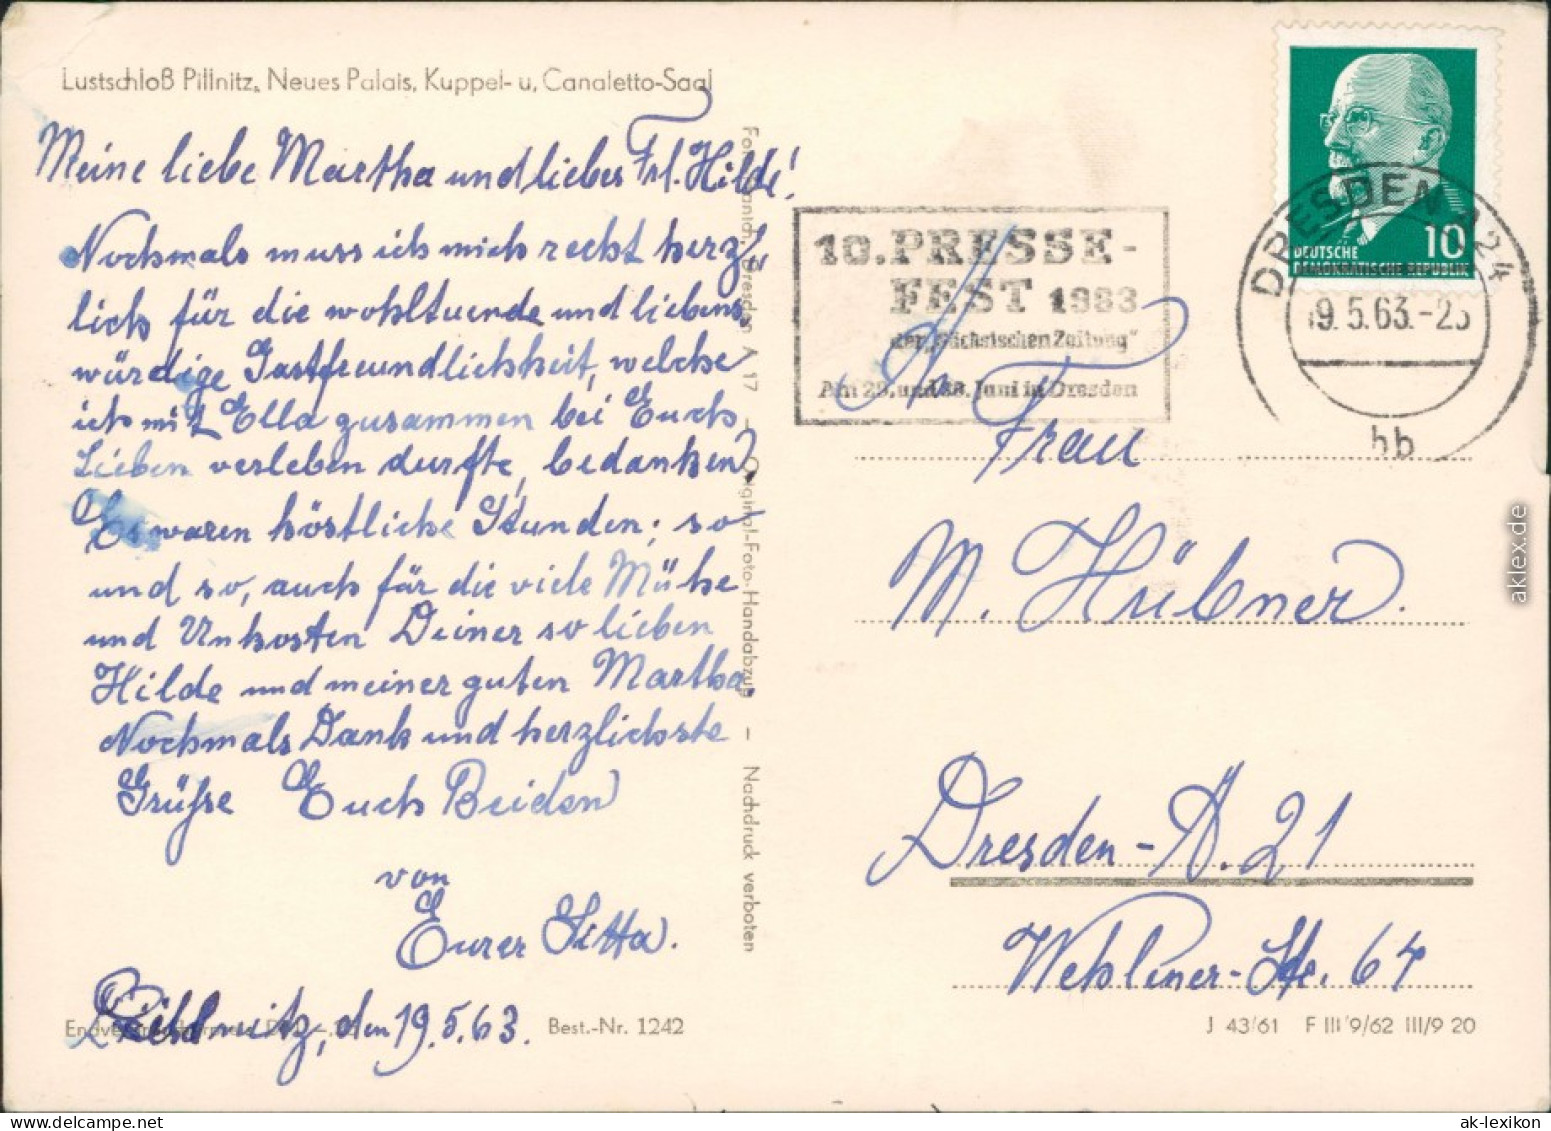 Lustschloß Pillnitz, Neues Palais, Kuppel- u. Canaletto-Saal
Meine liebe Martha und liebes Frl. Hilde!
Nochmals muss ich mich recht herz-
lich für die wohltuende und liebens
würdige Gastfreundlichkeit, welche
ich mit Ella zusammen bei Euch
Lieben verleben durfte, bedanken
Es waren köstliche Stunden; so
und so, auch für die viele Mühe
und Unkosten Deiner so lieben
Hilde und meiner guten Martha.
Nochmals Dank und herzlichste
Grüße Euch Beiden
von
Eurer Sitta.
den 19.5.63.
Best.-Nr. 1242
Dresden A 17 – Original-Foto-Handabzug – Nachdruck verboten
10. PRESSE-
FEST 1963
der „Sächsischen Zeitung“
Am 29. und 30. Juni in Dresden
DEUTSCHE
DEMOKRATISCHE REPUBLIK
10
DRESDEN A 24
19.5.63.-23
hb
An
Frau
M. Hübner.
Dresden-A. 21
Wehlener-Str. 64
J 43/61 F III/9/62 III/9 20
aklex.de
ak-lexikon